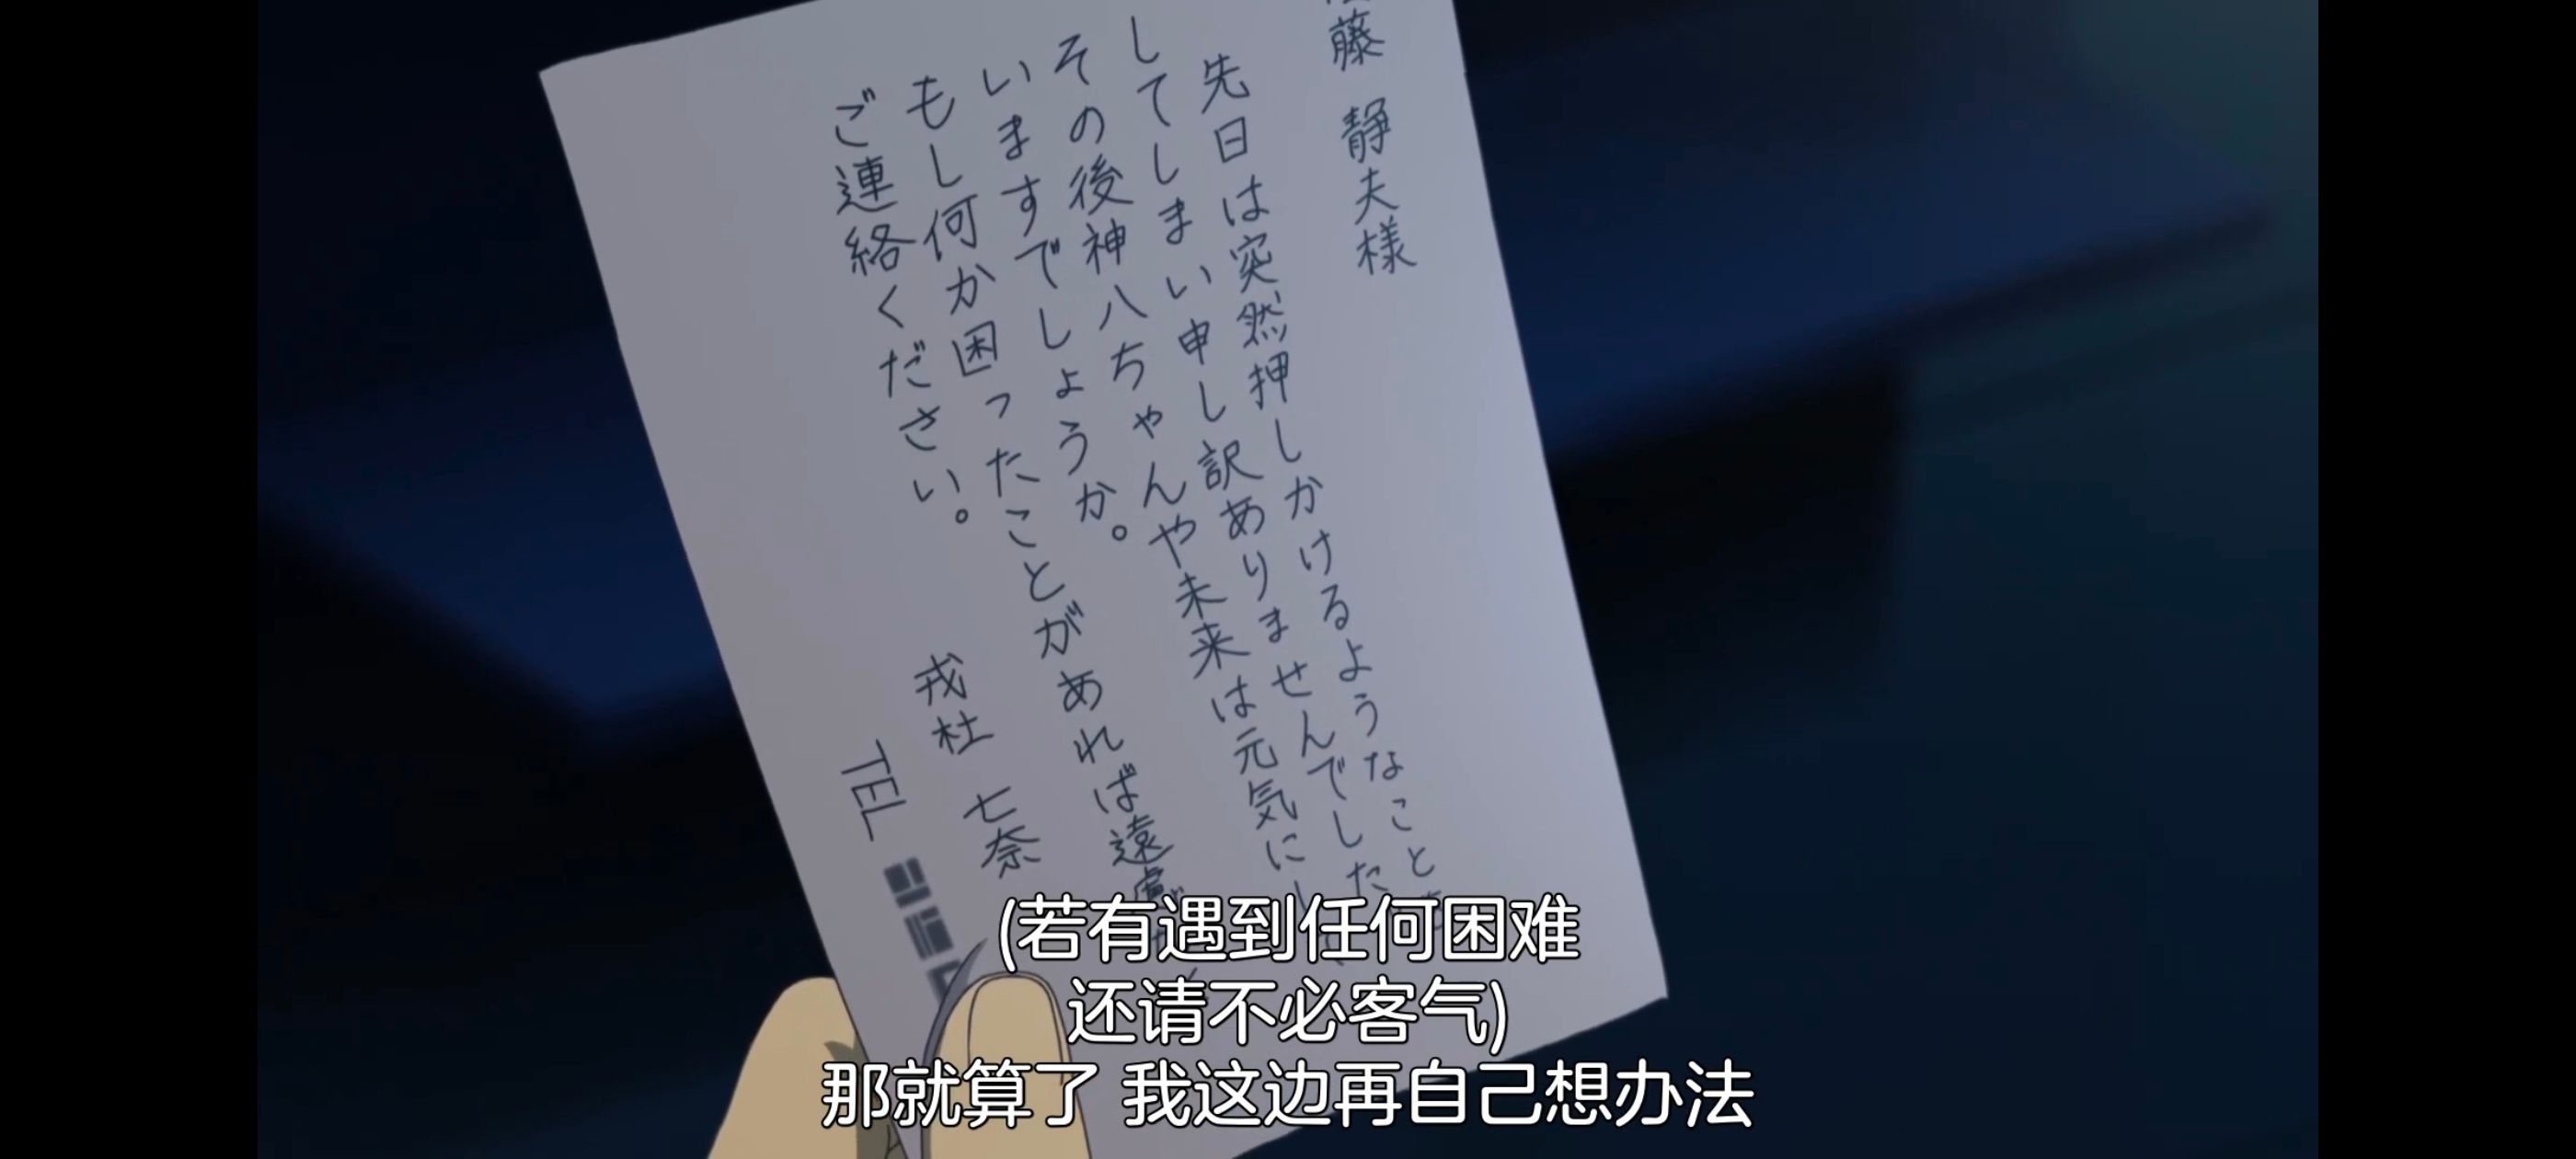 藤 静夫様
先日は突然押しかけるようなこと
してしまい申し訳ありませんでした
その後神八ちゃんや未来は元気にして
いますでしょうか。
もし何か困ったことがあれば遠慮
ご連絡ください。
戎杜 七奈
TEL
(若有遇到任何困难
还请不必客气)
那就算了 我这边再自己想办法